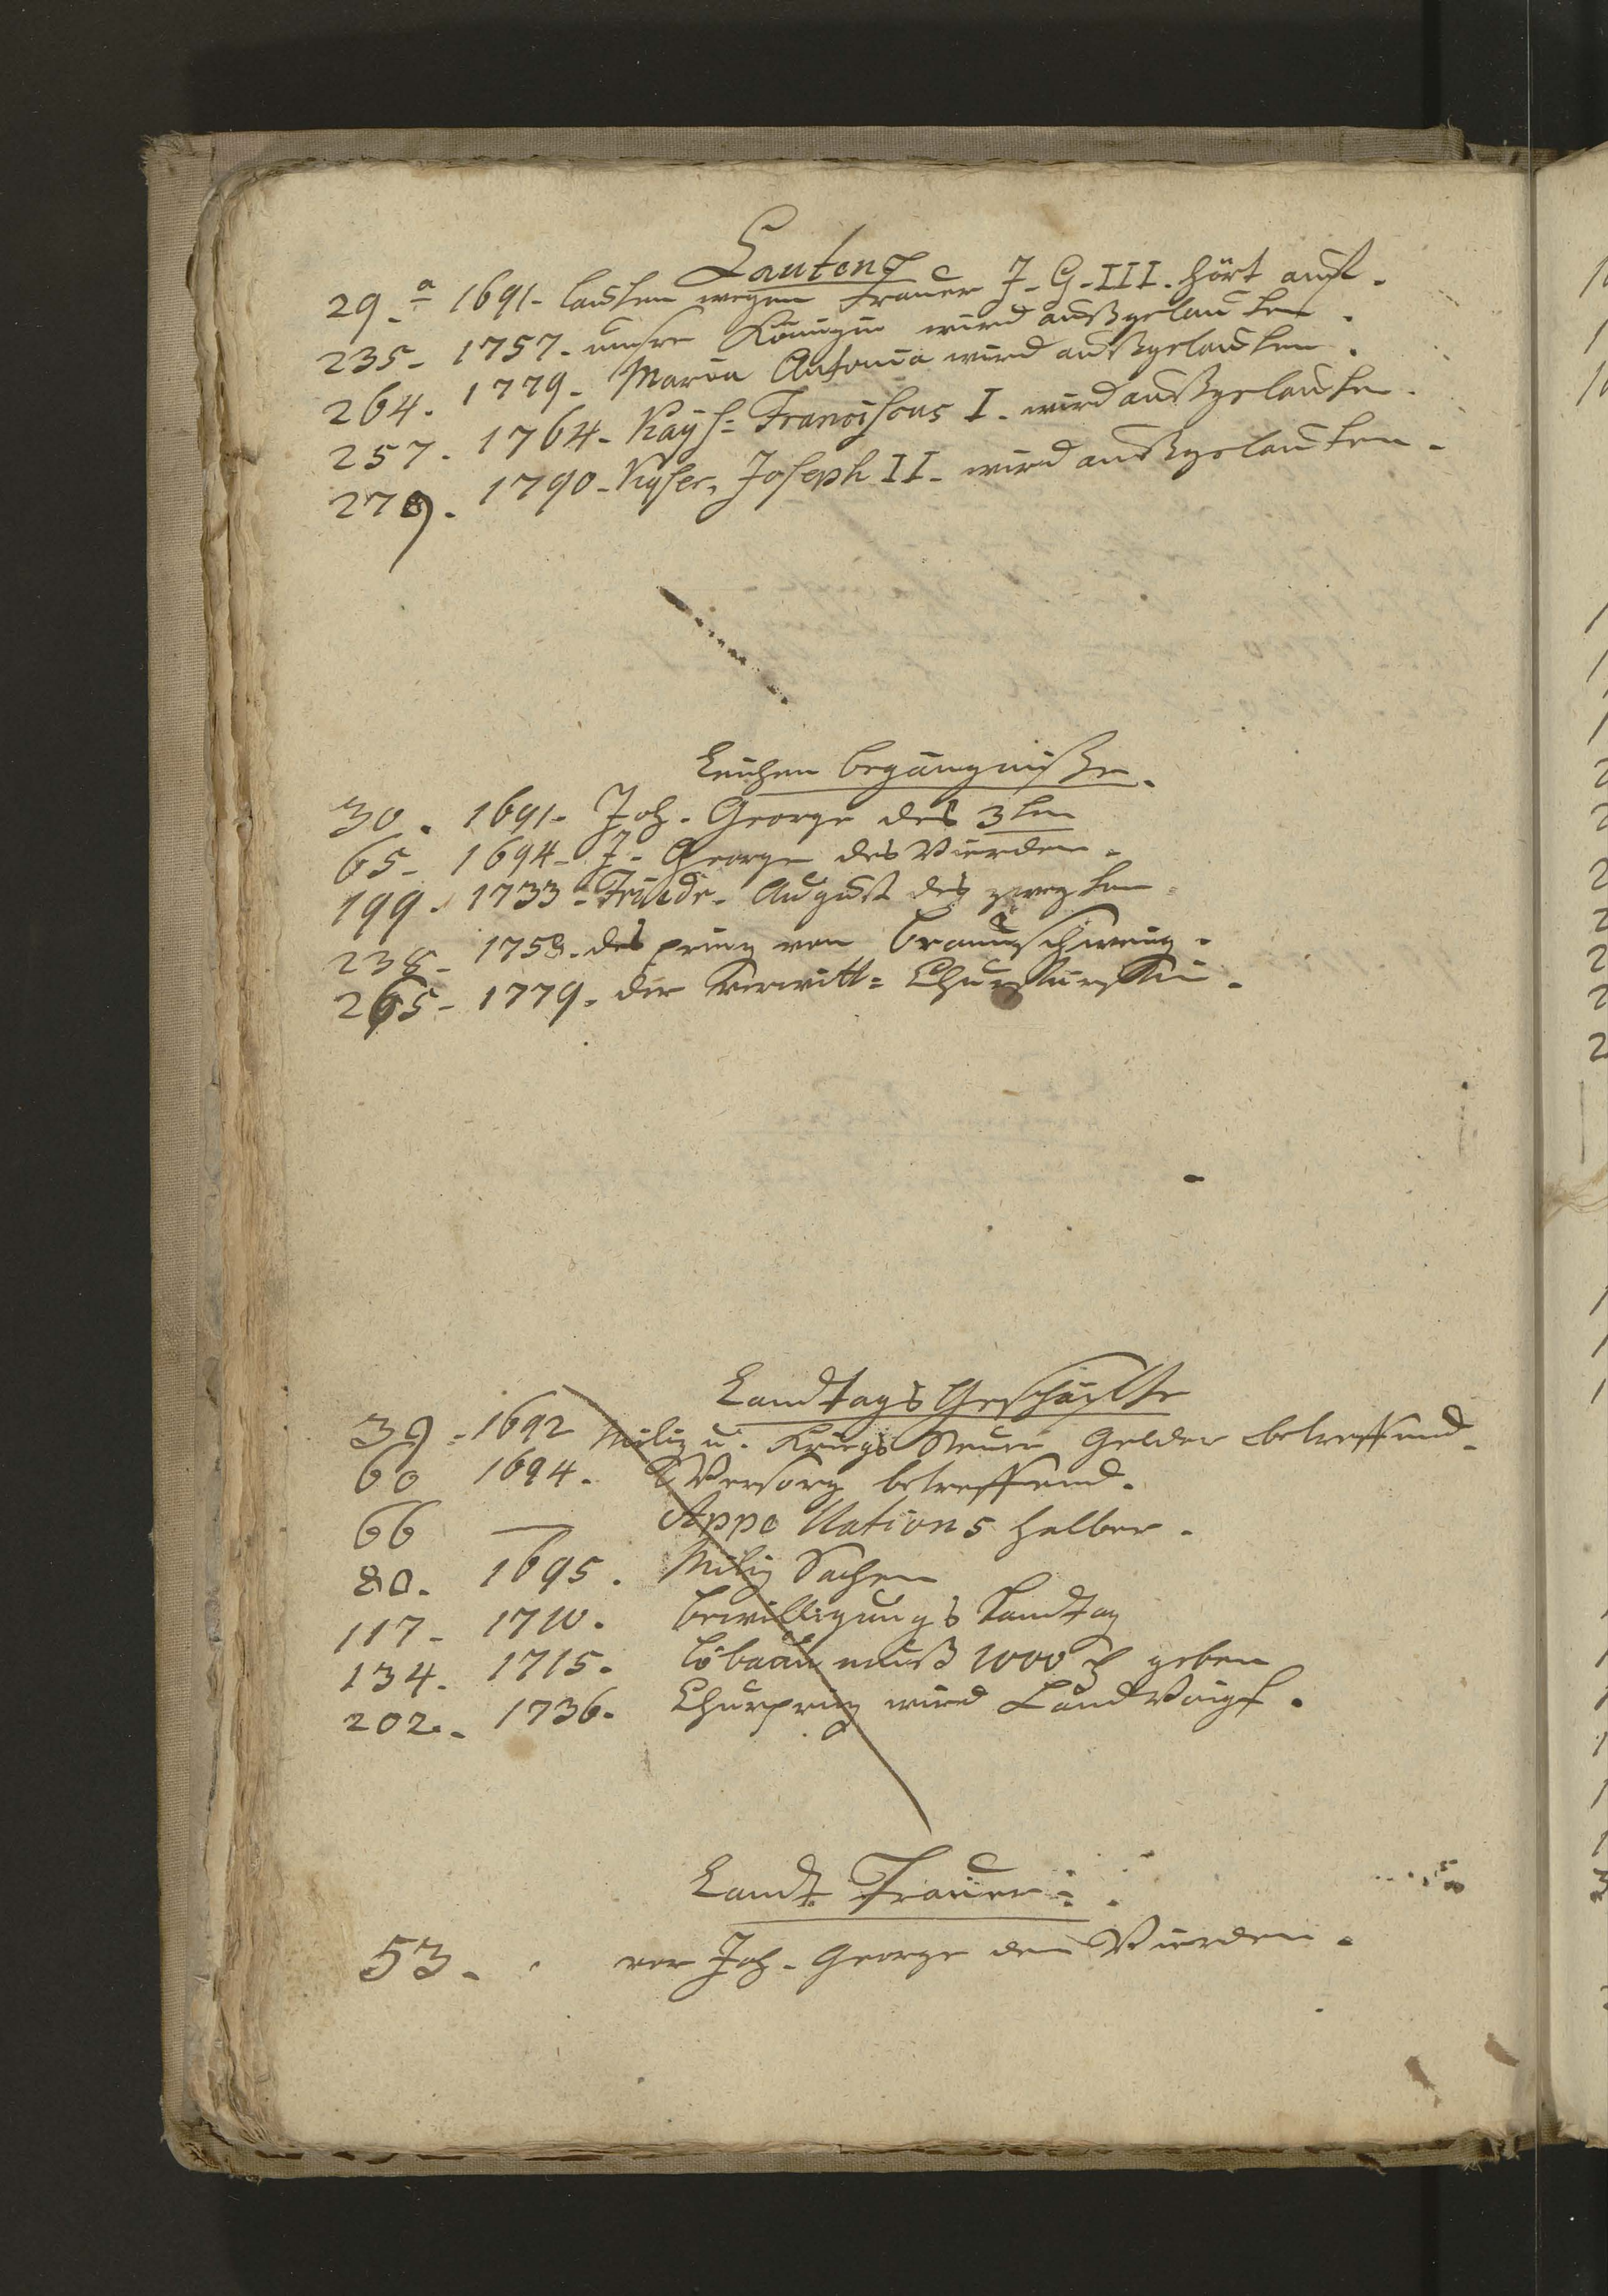 Lauten
29.a 1691. lauten wegen Trauer J. G. III. hört auf.
235. 1757. unsre Königin wird außgelauten.
264. 1779. Maria Antonia wird außgelauten.
257. 1764. Kays: Franciscus I. wird außgelauten.
279. 1790. Kyser, Joseph II. wird außgelauten.
Leichen begängniße.
30. 1691. Joh. George des 3ten
65. 1694. J. George des Vierden.
199. 1733. Friedr. August des zweyten.
238. 1758. des prinz von Braunschweig.
265. 1779. der verwitt: Churfürstin.
Landtags Geschäffte
39. 1692 Miliz u. Kriegs Steuer Gelder betreffend.
60 1694. Versorg betreffend.
66 — Appellations halber.
80. 1695. Miliz Sachen
117. 1710. bewilligungs Landtag
134. 1715. Löbau muß 1000 geben
202. 1736. Churprinz wird LandVoigt.
Landt Trauer:
53. vor Joh. George den Vierden.